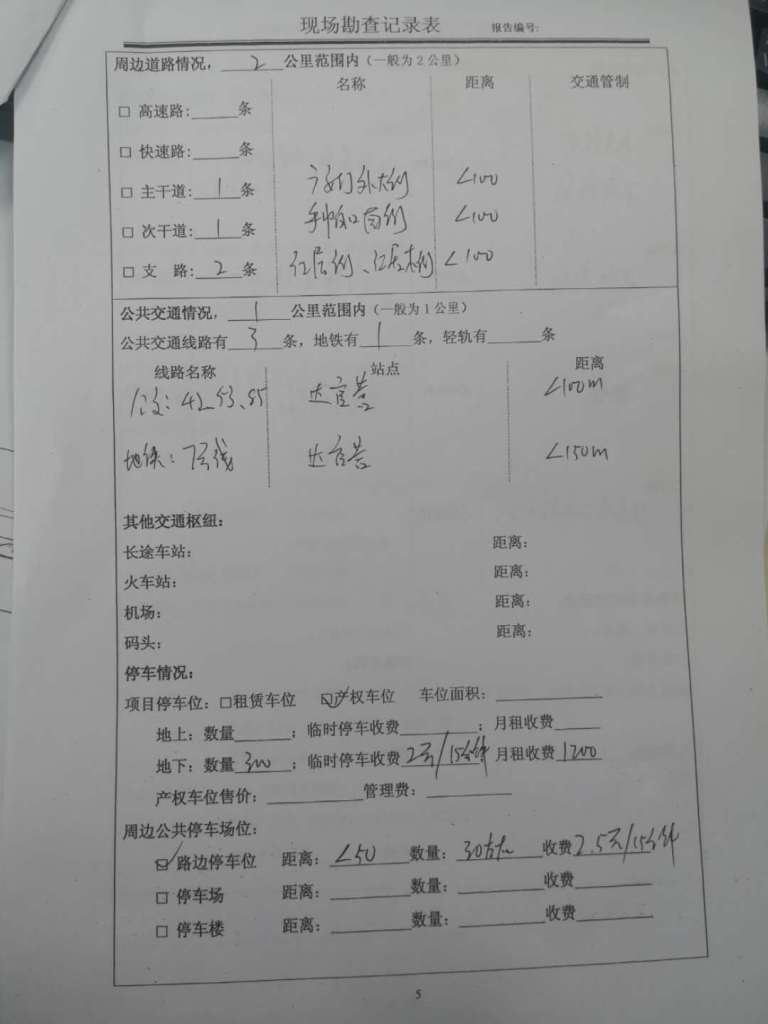 现场勘查记录表 报告编号:
周边道路情况，2公里范围内（一般为2公里）
名称 距离 交通管制
□ 高速路:______条
□ 快速路:______条
□ 主干道:1条 广安门外大街 <100
□ 次干道:1条 手帕口南街 <100
□ 支 路:2条 红居街、红居南街 <100
公共交通情况，1公里范围内（一般为1公里）
公共交通线路有3条，地铁有1条，轻轨有______条
线路名称 站点 距离
公交: 42、53、85 达官营 <100m
地铁: 7号线 达官营 <150m
其他交通枢纽:
长途车站: 距离:
火车站: 距离:
机场: 距离:
码头: 距离:
停车情况:
项目停车位: □租赁车位 ☑产权车位 车位面积:______
地上: 数量______; 临时停车收费______; 月租收费______
地下: 数量300; 临时停车收费2元/15分钟 月租收费1200
产权车位售价:______管理费:______
周边公共停车场位:
☑ 路边停车位 距离: <50 数量: 30左右 收费2.5元/15分钟
□ 停车场 距离:______数量:______收费______
□ 停车楼 距离:______数量:______收费______
5